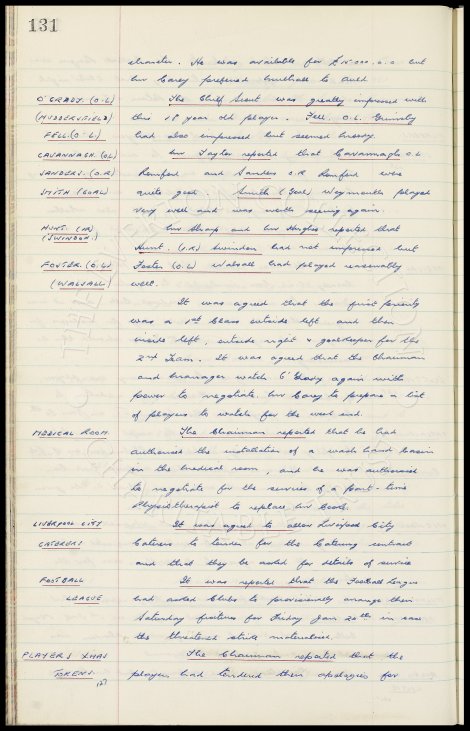 131
character. He was available for £15000.0.0 but
Mr Carey preferred Bruthall to Auld.
O'GRADY. (O-L) The Chief Scout was greatly impressed with
(HUDDERSFIELD) this 18 year old player. Fell. O.L. Grimsby
FELL. (O-L) had also impressed but seemed heavy.
CAVANNAGH. (OL) Mr Taylor reported that Cavannagh O.L.
SANDERS. (O.R) Romford and Sanders O.R Romford were
SMITH (GOAL) quite good. Smith (Goal) Weymouth played
very well and was worth seeing again.
HUNT. (IR) Mr Sharp and Mr Hughes reported that
(SWINDON.) Hunt. (I.R) Swindon had not impressed but
FOSTER. (O.L) Foster (O.L) Walsall had played reasonably
(WALSALL) well.
It was agreed that the first priority
was a 1st Class outside left and then
inside left, outside right & goalkeeper for the
2nd Team. It was agreed that the Chairman
and Manager watch O'Grady again with
power to negotiate. Mr Carey to prepare a list
of players to watch for the week end.
MEDICAL ROOM. The Chairman reported that he had
authorised the installation of a wash hand basin
in the Medical room, and he was authorised
to negotiate for the services of a part-time
Physiotherapist to replace Mr Cooke.
LIVERPOOL CITY It was agreed to allow Liverpool City
CATERERS Caterers to tender for the Catering contract
and that they be asked for details of service
FOOTBALL It was reported that the Football League
LEAGUE had asked Clubs to provisionally arrange their
Saturday fixtures for Friday Jan 20th in case
the threatened strike materialised.
PLAYERS XMAS The Chairman reported that the
TOKENS. players had tendered their apologies for